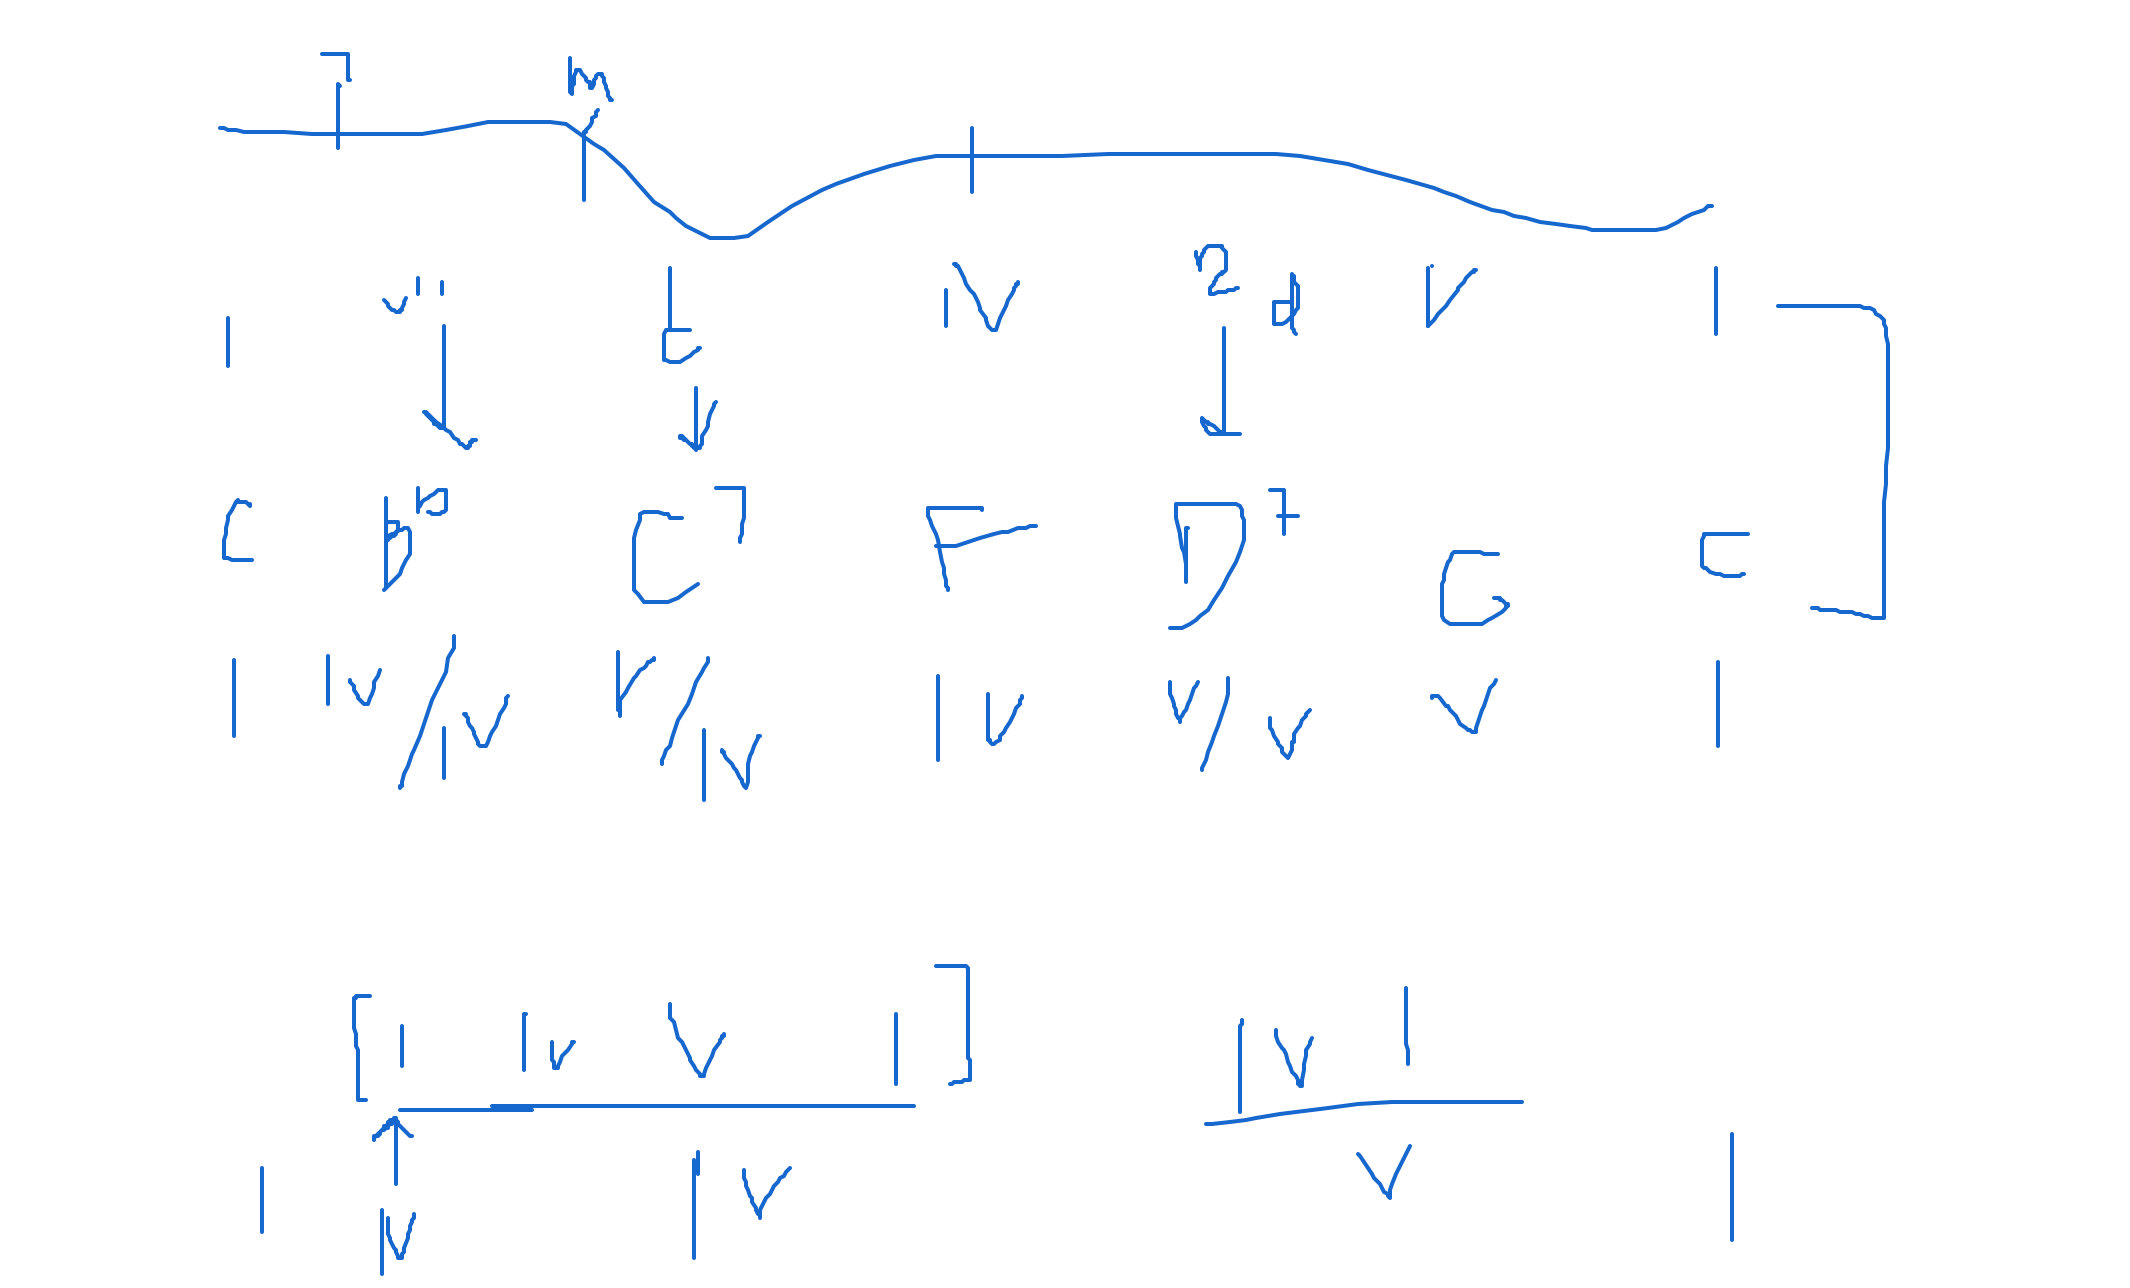 7 m
IV 2 d V I
C C7 F D7 G C
I IV/IV V/IV IV V/V V I
[I IV V I] IV I
I IV IV V I